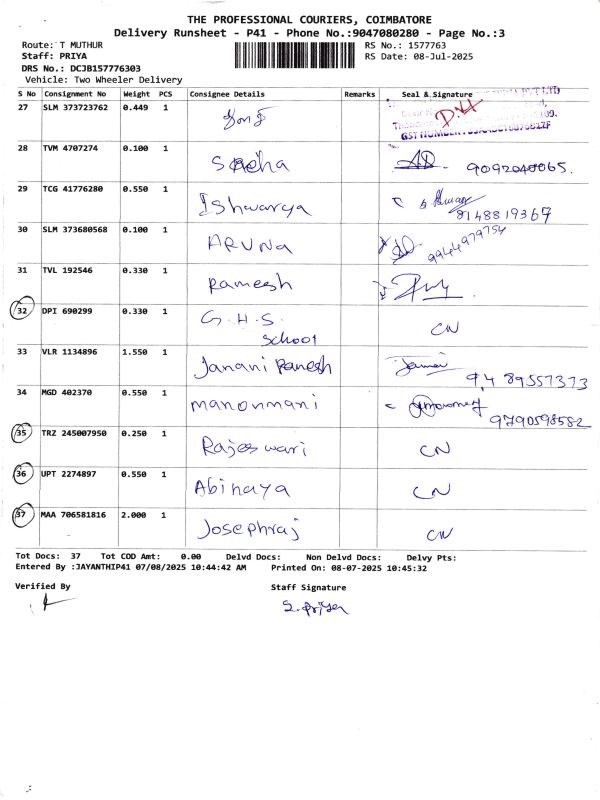 THE PROFESSIONAL COURIERS, COIMBATORE
Delivery Runsheet - P41 - Phone No.:9047080280 - Page No.:3
Route: T MUTHUR RS No.: 1577763
Staff: PRIYA RS Date: 08-Jul-2025
DRS No.: DCJB157776303
Vehicle: Two Wheeler Delivery
S No Consignment No Weight PCS Consignee Details Remarks Seal & Signature
27 SLM 373723762 0.449 1
28 TVM 4707274 0.100 1 9092040065.
29 TCG 41776280 0.550 1 Ishwarya 8148819367
30 SLM 373680568 0.100 1 ARUNa 9944979754
31 TVL 192546 0.330 1 Ramesh
32 DPI 690299 0.330 1 G.H.S. School CN
33 VLR 1134896 1.550 1 Janani Ramesh
34 MGD 402370 0.550 1 manonmani 9790598582
35 TRZ 245007950 0.250 1 Rajeswari CN
36 UPT 2274897 0.550 1 Abinaya CN
37 MAA 706581816 2.000 1 Josephraj CN
Tot Docs: 37 Tot COD Amt: 0.00 Delvd Docs: Non Delvd Docs: Delvy Pts:
Entered By :JAYANTHIP41 07/08/2025 10:44:42 AM Printed On: 08-07-2025 10:45:32
Verified By Staff Signature
S. Priya